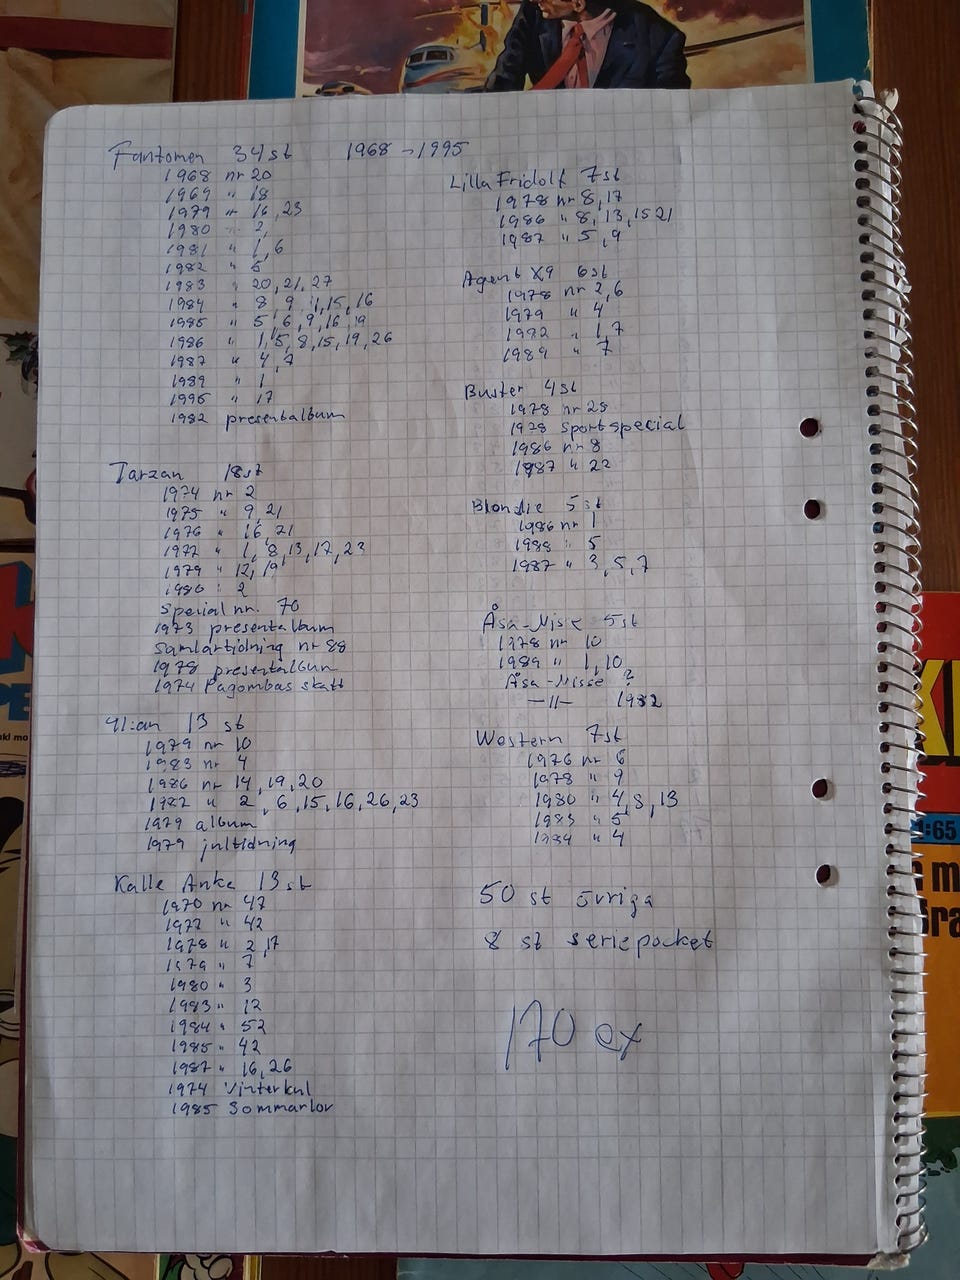 Fantomen 34st 1968-1995
1968 nr 20
1969 " 18
1979 " 16, 23
1980 " 2,
1981 " 1, 6
1982 " 5
1983 " 20, 21, 27
1984 " 8, 9, 11, 15, 16
1985 " 5, 6, 9, 16, 19
1986 " 1, 5, 8, 15, 19, 26
1987 " 4, 7
1989 " 1
1995 " 17
1982 presentalbum
Tarzan 18st
1974 nr 2
1975 " 9, 21
1976 " 16, 21
1977 " 1, 8, 13, 17, 23
1979 " 12, 19
1980 " 2
Special nr. 70
1973 presentalbum
Samlartidning nr 88
1978 presentalbum
1974 Pagombas skatt
91:an 13 st
1979 nr 10
1983 nr 4
1986 nr 14, 19, 20
1987 " 2, 6, 15, 16, 26, 23
1979 album
1979 jultidning
Kalle Anka 13 st
1970 nr 47
1977 " 42
1978 " 2, 17
1979 " 7
1980 " 3
1983 " 12
1984 " 52
1985 " 42
1987 " 16, 26
1974 Vinterkul
1985 Sommarlov
Lilla Fridolf 7st
1978 nr 8, 17
1986 " 8, 13, 15 21
1987 " 5, 9
Agent X9 6st
1978 nr 2, 6
1979 " 4
1982 " 1, 7
1989 " 7
Buster 4st
1978 nr 28
1978 sportspecial
1986 nr 8
1987 " 22
Blondie 5 st
1986 nr 1
1988 " 5
1987 " 3, 5, 7
Åsa-Nisse 5st
1978 nr 10
1989 " 1, 10
Åsa-Nisse ?
—11— 1982
Western 7st
1976 nr 6
1978 " 9
1980 " 4, 8, 13
1983 " 5
1984 " 4
50 st övriga
8 st seriepocket
170 ex